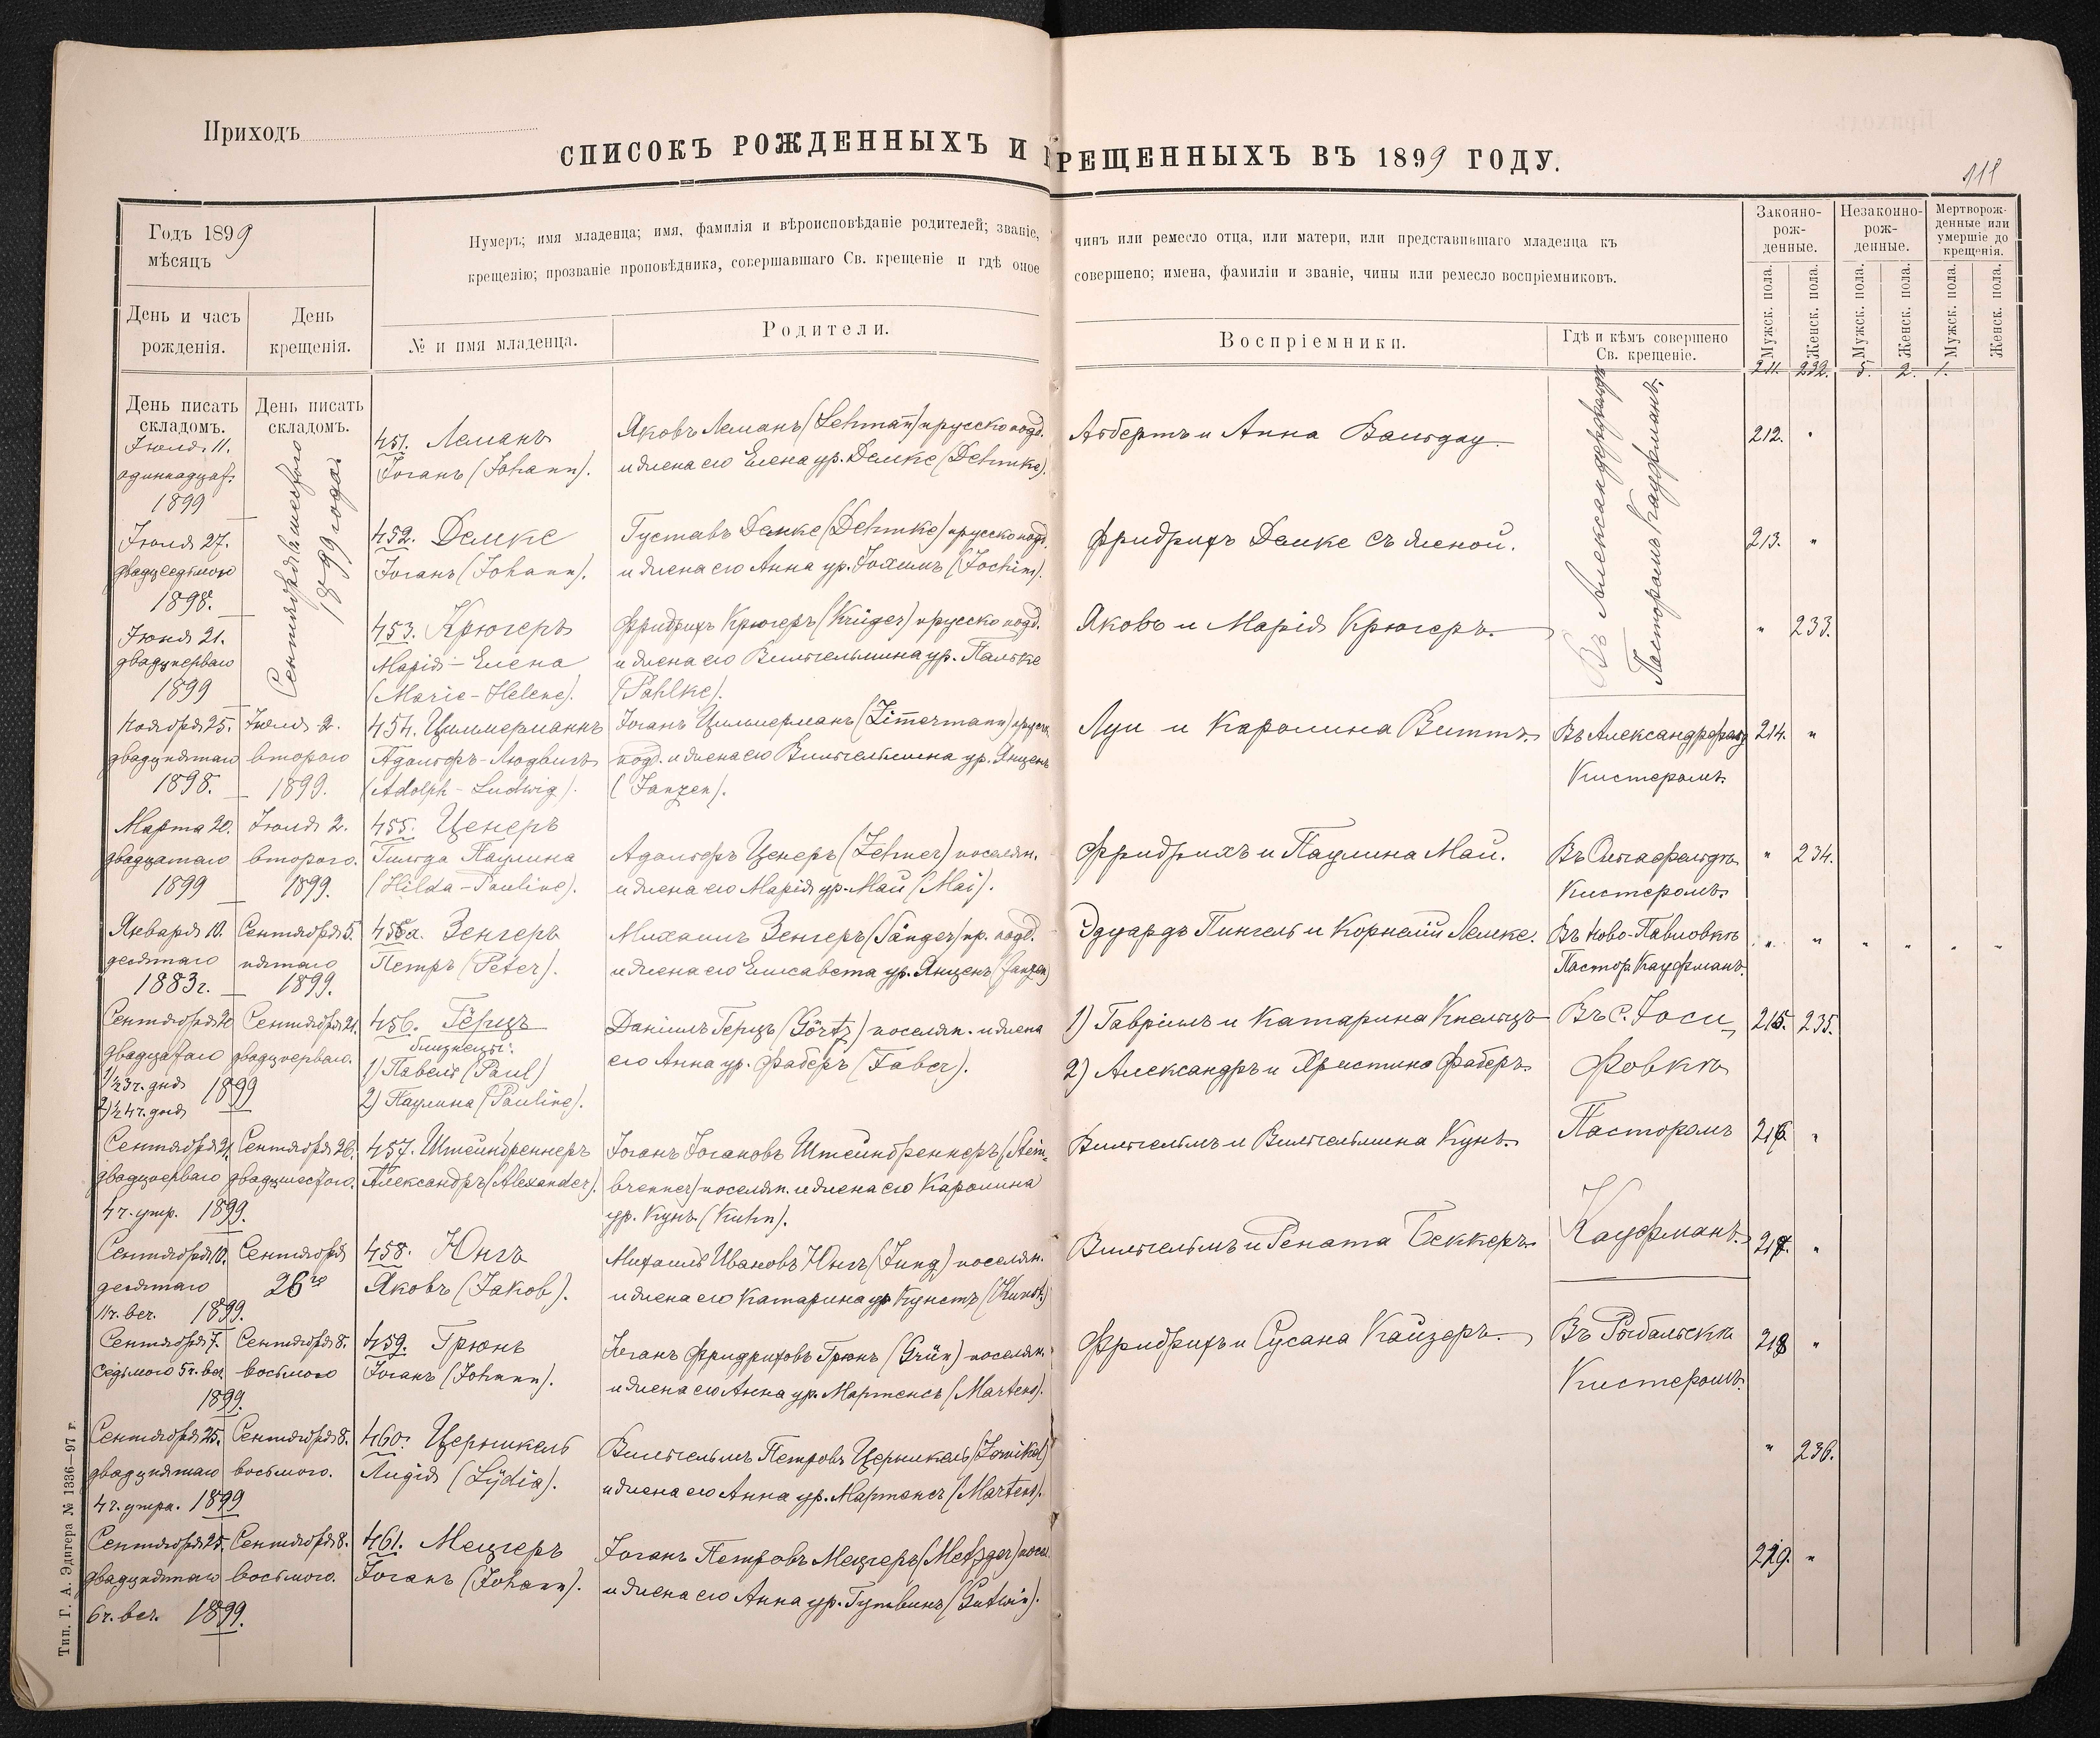 Приходъ
СПИСОКЪ РОЖДЕННЫХЪ И КРЕЩЕННЫХЪ ВЪ 1899 ГОДУ.
Годъ 1899
мѣсяцъ
Нумеръ; имя младенца; имя, фамилія и вѣроисповѣданіе родителей; званіе, чинъ или ремесло отца, или матери, или представившаго младенца къ
крещенію; прозваніе проповѣдника, совершавшаго Св. крещеніе и гдѣ оное совершено; имена, фамиліи и званіе, чины или ремесло воспріемниковъ.
Законно-
рож-
денные.
Незаконно-
рож-
денные.
Мертворож-
денные или
умершіе до
крещенія.
День и часъ
рожденія.
День
крещенія.
№ и имя младенца.
Родители.
Воспріемники.
Гдѣ и кѣмъ совершено
Св. крещеніе.
Мужск. пола.
Женск. пола.
Мужск. пола.
Женск. пола.
Мужск. пола.
Женск. пола.
211. 232. 5. 2. 1.
День писать
складомъ.
День писать
складомъ.
Іюля 11.
1899
1899 года.
451. Леманъ
Іоганъ (Johann).
Яковъ Леманъ (Lehmañ) прусско подд.
и жена его Елена ур. Демке (Dehmke).
Альбертъ и Анна
Въ Александерфельдѣ
Пасторомъ Кауфманъ.
212. "
Іюля 27.
двадцседьмого
1898.
452. Демке
Іоганъ (Johann).
Густавъ Демке (Dehmke) прусско подд.
и жена его Анна ур. Іохимъ (Jochim).
Фридрихъ Демке съ женой.
213. "
Іюня 21.
двадцперваго
1899
453. Крюгеръ
Марія-Елена
(Marie-Helene).
Фридрихъ Крюгеръ (Krüger) прусско подд.
и жена его Вильгельмина ур. Пальке
(Pahlke).
Яковъ и Марія Крюгеръ.
" 233.
Ноября 25.
двадцпятаго
1898.
Іюля 2.
второго
1899.
454. Циммерманнъ
Адольфъ-Людвигъ
(Adolph-Ludwig).
Іоганъ Циммерманъ (Zim̃ermann) прусск.
подд. и жена его Вильгельмина ур. Янценъ
(Janzen).
Луи и Каролина Виттъ.
Кистеромъ.
214. "
Марта 20.
двадцатаго
1899
Іюля 2.
второго.
1899.
455. Ценеръ
Гильда Паулина
(Hilda-Pauline).
Адольфъ Ценеръ (Zehner) поселян.
и жена его Марія ур. Май (Mai).
Фридрихъ и Паулина Май.
Кистеромъ.
" 234.
Января 10.
десятаго
1883г.
Сентября 5.
пятаго
1899.
455а. Зенгеръ
Петръ (Peter).
Михаилъ Зенгеръ (Sänger) пр. подд.
и жена его Елисавета ур. Янценъ (Janzen)
Эдуардъ Пингель и Корнелій Лемке.
Въ Ново-Павловкѣ
Пастор Кауфманъ.
" " " " " "
Сентября 20
двадцатаго
1) ½3 г. дня 1899
2) ½4 г. дня
Сентября 21.
двадцперваго.
456. Гёрцъ
близнецы:
1) Павелъ (Paul)
2) Паулина (Pauline).
Даніилъ Герцъ (Görtz) поселян. и жена
его Анна ур. Фаберъ (Faber).
1) Гавріилъ и Катарина Кнельцъ
2) Александръ и Христина Фаберъ.
Въ С. Іоси-
фовкѣ
215. 235.
Сентября 21.
двадцперваго
4 г. утр. 1899.
Сентября 26.
двадцшестого.
457. Штейнбреннеръ
Александръ (Alexander).
Іоганъ Іогановъ Штейнбреннеръ (Stein-
brenner) поселян. и жена его Каролина
ур. Кунъ (Kuhn).
Вильгельмъ и Вильгельмина Кунъ.
Пасторомъ
216. "
Сентября 10.
десятаго
11 г. веч. 1899.
Сентября
26го
458. Юнгъ
Яковъ (Jakob).
Михаилъ Ивановъ Юнгъ (Jung) поселян.
и жена его Катарина ур. Кунстъ (Kunst.)
Вильгельмъ и Рената Беккеръ.
Кауфманъ.
217. "
Сентября 7.
седьмого 5 г. веч.
1899.
Сентября 8.
восьмого
459. Грюнъ
Іоганъ (Johann).
Іоганъ Фридриховъ Грюнъ (Grün) поселян.
и жена его Анна ур. Мартенсъ (Martens).
Фридрихъ и Сусана Кайзеръ.
Въ Рыбальскѣ
Кистеромъ.
218 "
Сентября 25.
двадцпятаго
4 г. утра. 1899
Сентября 8.
восьмого.
460. Церникель
Лидія (Lydia).
Вильгельмъ Петровъ Церникель
и жена его Анна ур. Мартенсъ (Martens).
" 236.
Сентября 25.
двадцпятаго
6 г. веч. 1899.
Сентября 8.
восьмого.
461. Мецгеръ
Іоганъ (Johann).
Іоганъ Петровъ Мецгеръ (Metzger) посел.
и жена его Анна ур. Гутвинъ (Gutwin).
219. "
Тип. Г. А. Эдигера № 1336—97 г.